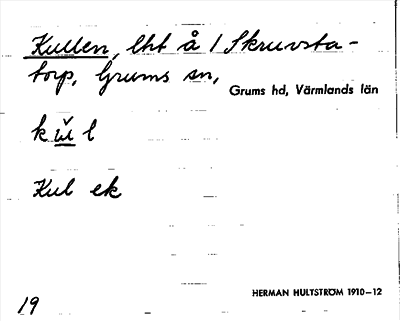 Kullen, lht å 1 Skruvsta-
torp, Grums sn,
Grums hd, Värmlands län
k ŭ l
Kul ek
HERMAN HULTSTRÖM 1910-12
19